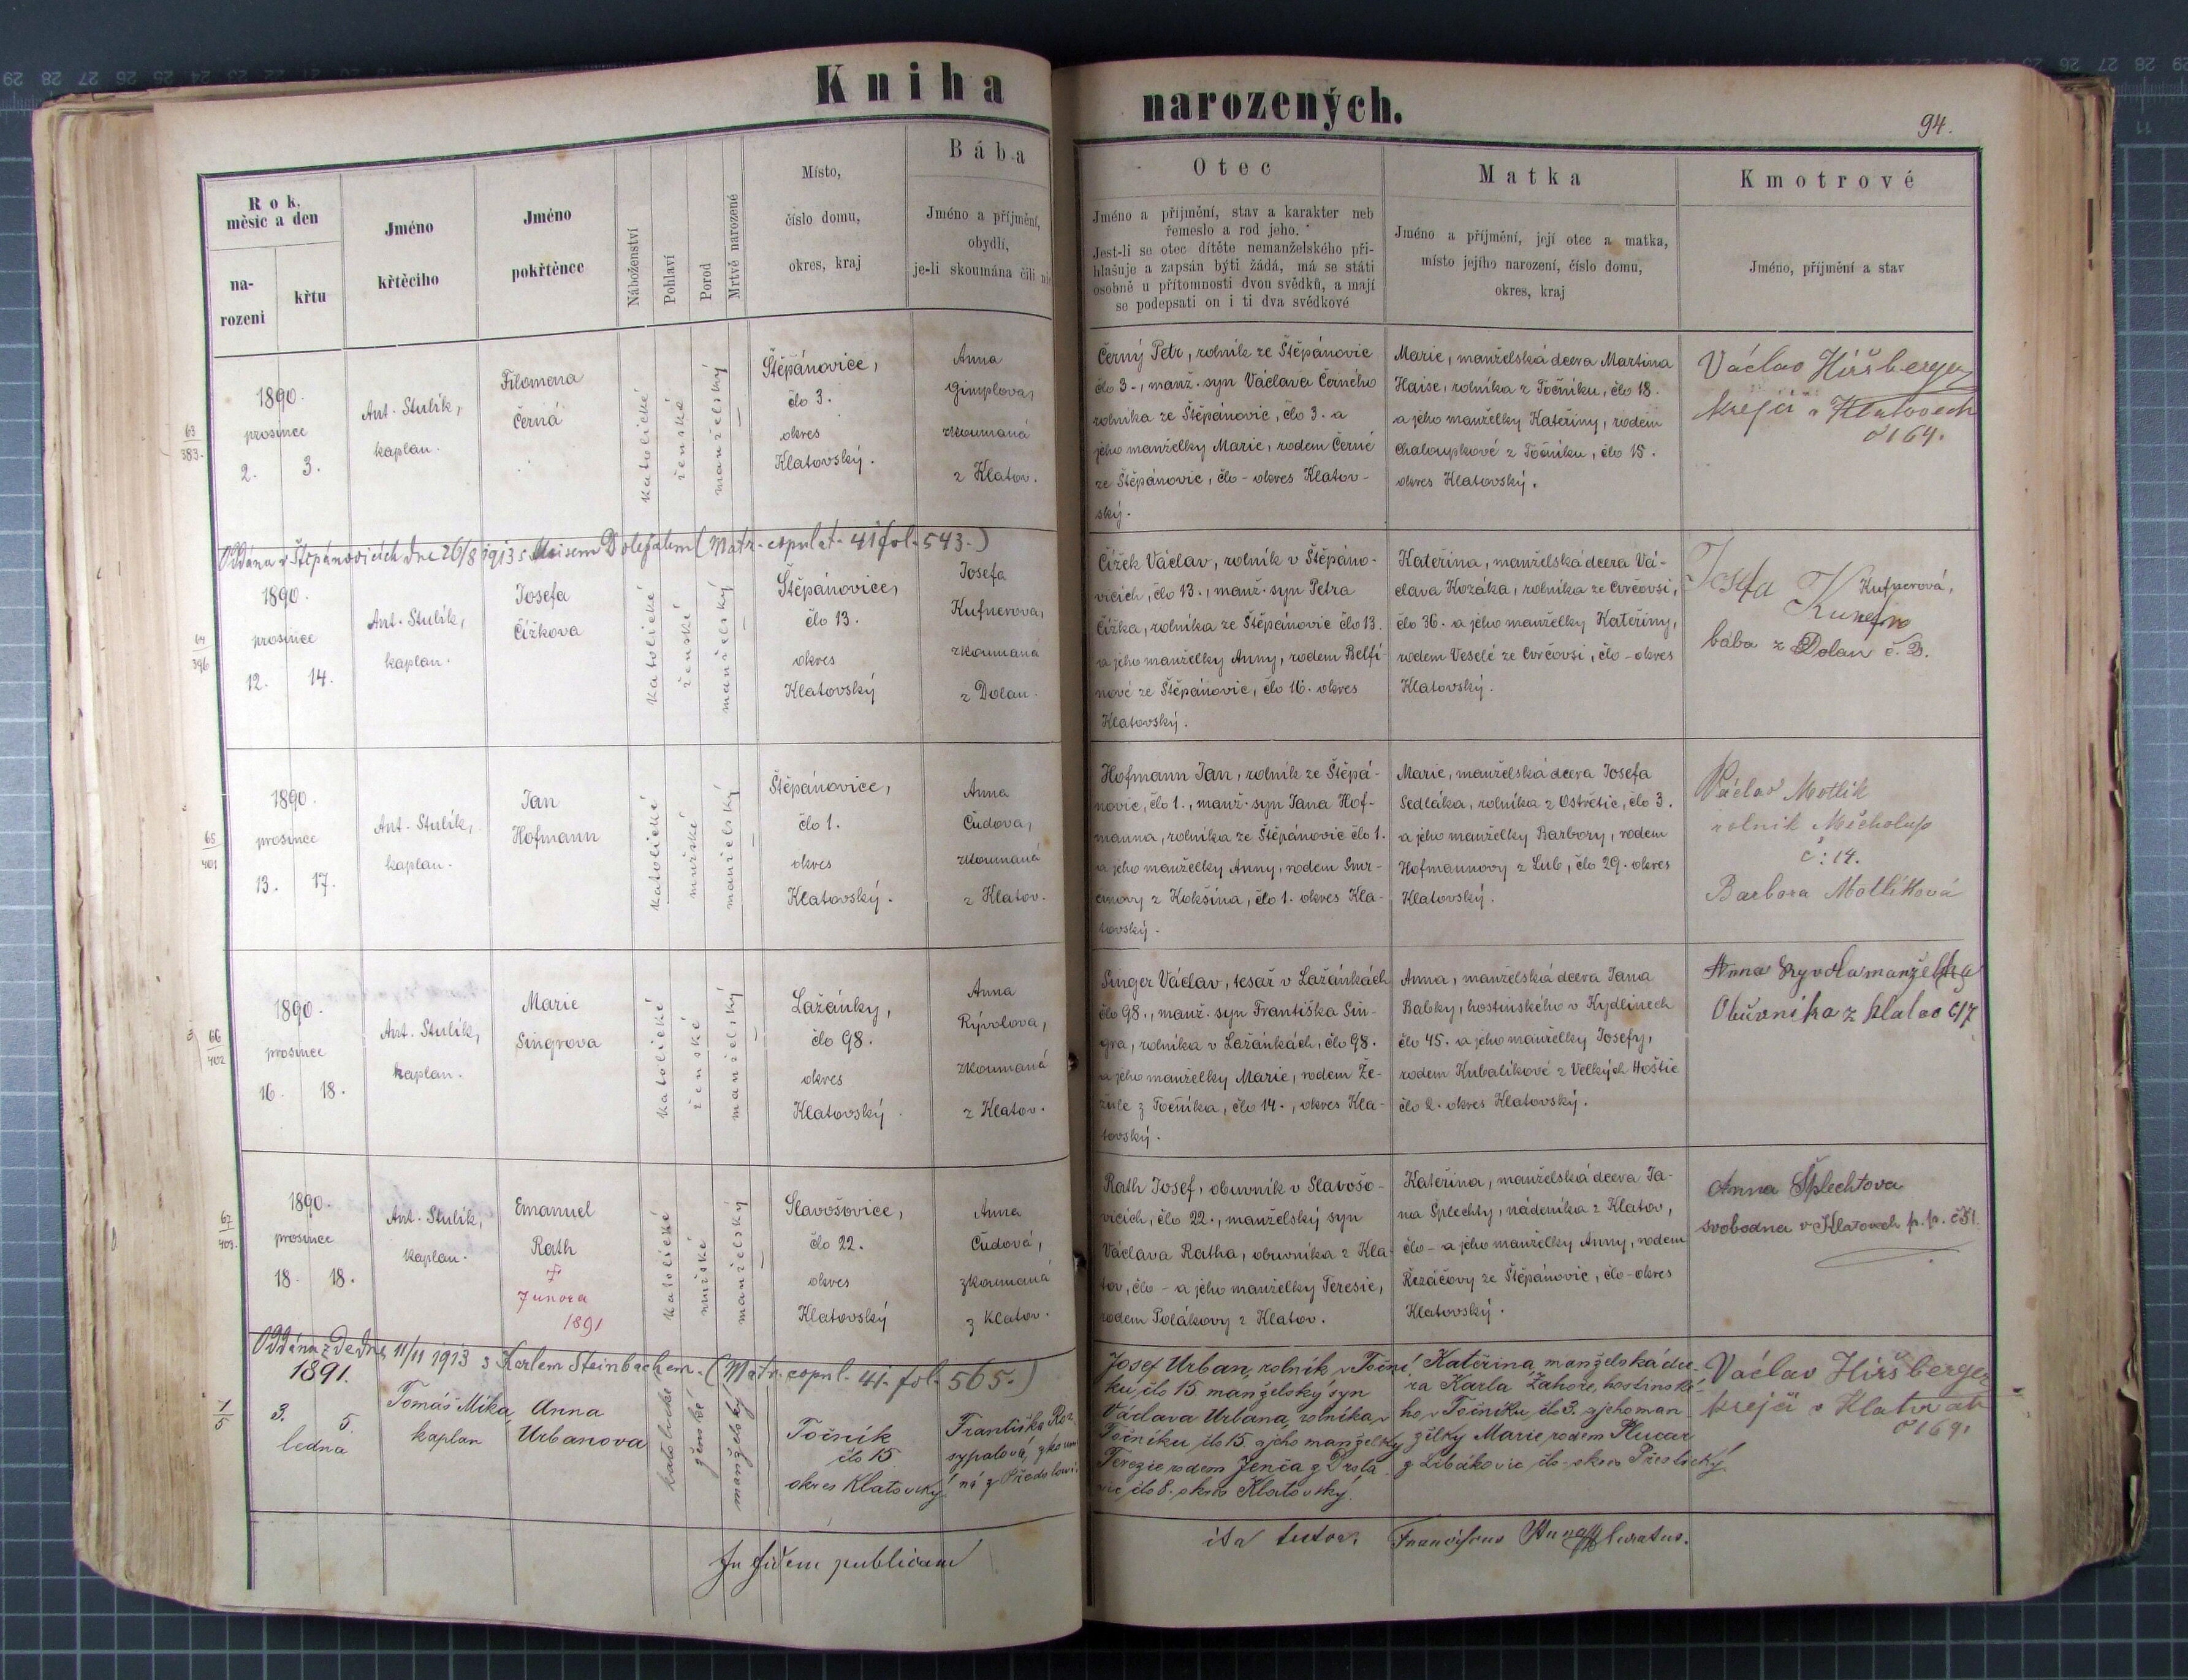 Kniha narozených.
94.
Rok, měsíc a den
na-
rozeni
křtu
Jméno
křtěcího
Jméno
pokřtěnce
Náboženství
Pohlaví
Porod
Mrtvě narozené
Místo,
číslo domu,
okres, kraj
Bába
Jméno a příjmění,
obydlí,
je-li skoumána čili
Otec
Jméno a příjmění, stav a karakter neb
řemeslo a rod jeho.
Jest-li se otec dítěte nemanželského při-
hlašuje a zapsán býti žádá, má se státi
osobně u přítomnosti dvou svědků, a mají
se podepsati on i ti dva svědkové
Matka
Jméno a příjmění, její otec a matka,
místo jejího narození, číslo domu,
okres, kraj
Kmotrové
Jméno, příjmění a stav
63
383.
1890.
prosince
2. 3.
Ant. Stulík,
kaplan.
Filomena
Černá
katolické
ženské
manželský
—
Štěpánovice,
člo 3.
okres
Klatovský.
Anna
Gimplova,
zkoumaná
z Klatov.
Černý Petr, rolník ze Štěpánovic
člo 3., manž. syn Václava Černého
rolníka ze Štěpánovic, člo 3. a
jeho manželky Marie, rodem Černé
ze Štěpánovic, člo - okres Klatov-
ský.
Marie, manželská dcera Martina
Haise, rolníka z Točníku, člo 18.
a jeho manželky Kateřiny, rodem
Chaloupkové z Točníku, člo 15.
okres Klatovský.
Václav Hiršberger
krejčí v Klatovech
č 164.
Oddána v Štěpánovicích dne 26/8 1913 s Aloisem Doležalem (Matr. copulat. 41 fol. 543.)
64
396
1890.
prosince
12. 14.
Ant. Stulík,
kaplan.
Josefa
Čížkova
katolické
ženské
manželský
—
Štěpánovice,
člo 13.
okres
Klatovský
Josefa
Kufnerova,
zkoumana
z Dolan.
Čížek Václav, rolník v Štěpáno-
vicích, člo 13., manž. syn Petra
Čížka, rolníka ze Štěpánovic člo 13.
a jeho manželky Anny, rodem Belfí-
nové ze Štěpánovic, člo 16. okres
Klatovský.
Kateřina, manželská dcera Vá-
clava Kozáka, rolníka ze Cvrčovsi,
člo 36. a jeho manželky Kateřiny,
rodem Veselé ze Cvrčovsi, člo - okres
Klatovský.
Josefa Kufnerová,
bába z Dolan č.
65
401
1890.
prosince
13. 17.
Ant. Stulík,
kaplan.
Jan
Hofmann
katolické
mužské
manželský
—
Štěpánovice,
člo 1.
okres
Klatovský.
Anna
Čudova,
zkoumaná
z Klatov.
Hofmann Jan, rolník ze Štěpá-
novic, člo 1., manž. syn Jana Hof-
manna, rolníka ze Štěpánovic člo 1.
a jeho manželky Anny, rodem Smr-
čnovy z Kokšína, člo 1. okres Kla-
tovský.
Marie, manželská dcera Josefa
Sedláka, rolníka z Ostřetic, člo 3.
a jeho manželky Barbory, rodem
Hofmannovy z Lub, člo 29. okres
Klatovský.
Václav Motlík
rolník Měcholup
č: 14.
Barbora Motlíková
66
402
1890.
prosince
16. 18.
Ant. Stulík,
kaplan.
Marie
Singrova
katolické
ženské
manželský
—
Lažánky,
člo 98.
okres
Klatovský.
Anna
Rývolova,
zkoumaná
z Klatov.
Singer Václav, tesař v Lažánkách
člo 98., manž. syn Františka Sin-
gra, rolníka v Lažánkách, člo 98.
a jeho manželky Marie, rodem Že-
žule z Točníka, člo 14., okres Kla-
tovský.
Anna, manželská dcera Jana
Babky, hostinského v Kydlinech
člo 45. a jeho manželky Josefy,
rodem Kubalíkové z Velkých Hoštic
člo 2. okres Klatovský.
Anna manželka
Obuvníka z Klatov
67
403.
1890.
prosince
18. 18.
Ant. Stulík,
kaplan.
Emanuel
Rath
†
7 února
1891
katolické
mužské
manželský
—
Slavošovice,
člo 22.
okres
Klatovský
Anna
Čudová,
zkoumaná
z Klatov.
Rath Josef, obuvník v Slavošo-
vicích, člo 22., manželský syn
Václava Ratha, obuvníka z Kla-
tov, člo - a jeho manželky Teresie,
rodem Polákovy z Klatov.
Kateřina, manželská dcera Ja-
na Šplechty, nádeníka z Klatov,
člo - a jeho manželky Anny, rodem
Řezáčovy ze Štěpánovic, člo - okres
Klatovský.
Anna Šplechtova
svobodna v Klatovech p. p. č 51.
Oddána zde dne 11/11 1913 s Karlem Steinbachem. (Matr. copul. 41. fol. 565.)
1
5
1891.
3. 5.
ledna
Tomáš Míka
kaplan
Anna
Urbanova
katolické
ženské
manželský
Točník
člo 15
okres Klatovský
Františka Roz-
sypalová, zkoum
ná z Předslavi
Josef Urban, rolník v Toční-
ku člo 15 manželský syn
Václava Urbana, rolníka v
Točníku člo 15. a jeho manželky
Terezie rodem Jenča z
člo 8. okres Klatovský.
Kateřina manželská dce-
ra Karla Zahoře, hostinské-
ho v Točníku člo 3. a jeho man
želky Marie, rodem
z Libákovic člo - okres Přeštický
Václav Hiršberger
krejčí v Klatovech
č 169.
In fidem publicam
ita testor. Curatus.